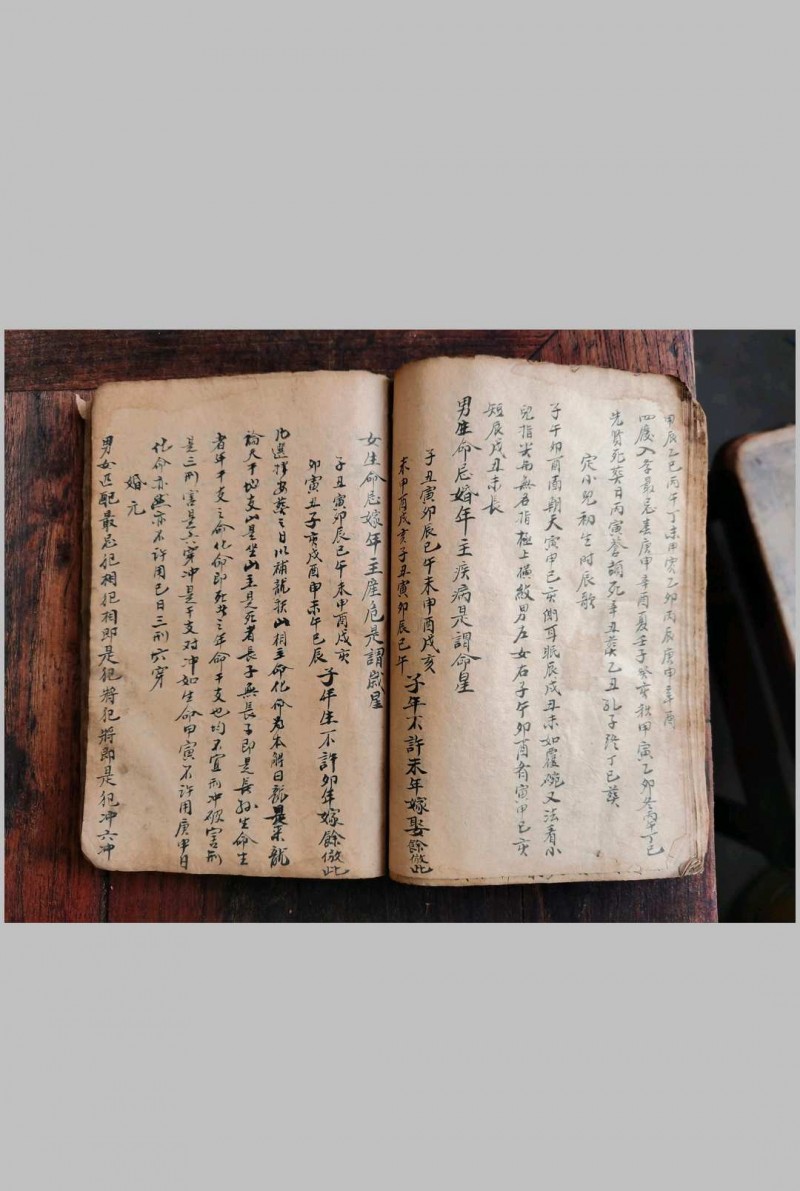 甲辰乙巳丙午丁未甲寅乙卯丙辰庚申辛酉
四廢入季最忌春庚申辛酉夏壬子癸亥秋甲寅乙卯冬丙午丁巳
先賢死葬日丙寅蒼頡死辛丑葬乙丑孔子終丁巳葬
定小兒初生时辰歌
子午卯酉面朝天寅申巳亥側耳眠辰戌丑未如覆碗又法看小
兒指尖両無名指極上横紋男左女右子午卯酉者寅申巳亥
短辰戌丑未長
男生命忌婚年主疾病是謂命星
子丑寅卯辰巳午未申酉戌亥
未申酉戌亥子丑寅卯辰巳午
子年不許未年嫁娶餘倣此
女生命忌嫁年主産危是謂歲星
子丑寅卯辰巳午未申酉戌亥
卯寅丑子亥戌酉申未午巳辰
子年生不許卯年嫁餘倣此
凡選擇安葬之日以補龍扶山相主命化命為本解曰龍是来龍
論天干地支山是坐山主是死者長子無長子即是長孙生命生
者年干支之命化命即死者之年命干支也均不宜刑冲破害刑
是三刑害是六穿冲是干支对冲如生命甲寅不許用庚申日
化命亦然亦不許用巳日三刑六穿
婚元
男女匹配最忌犯相犯相即是犯將犯將即是犯冲六冲